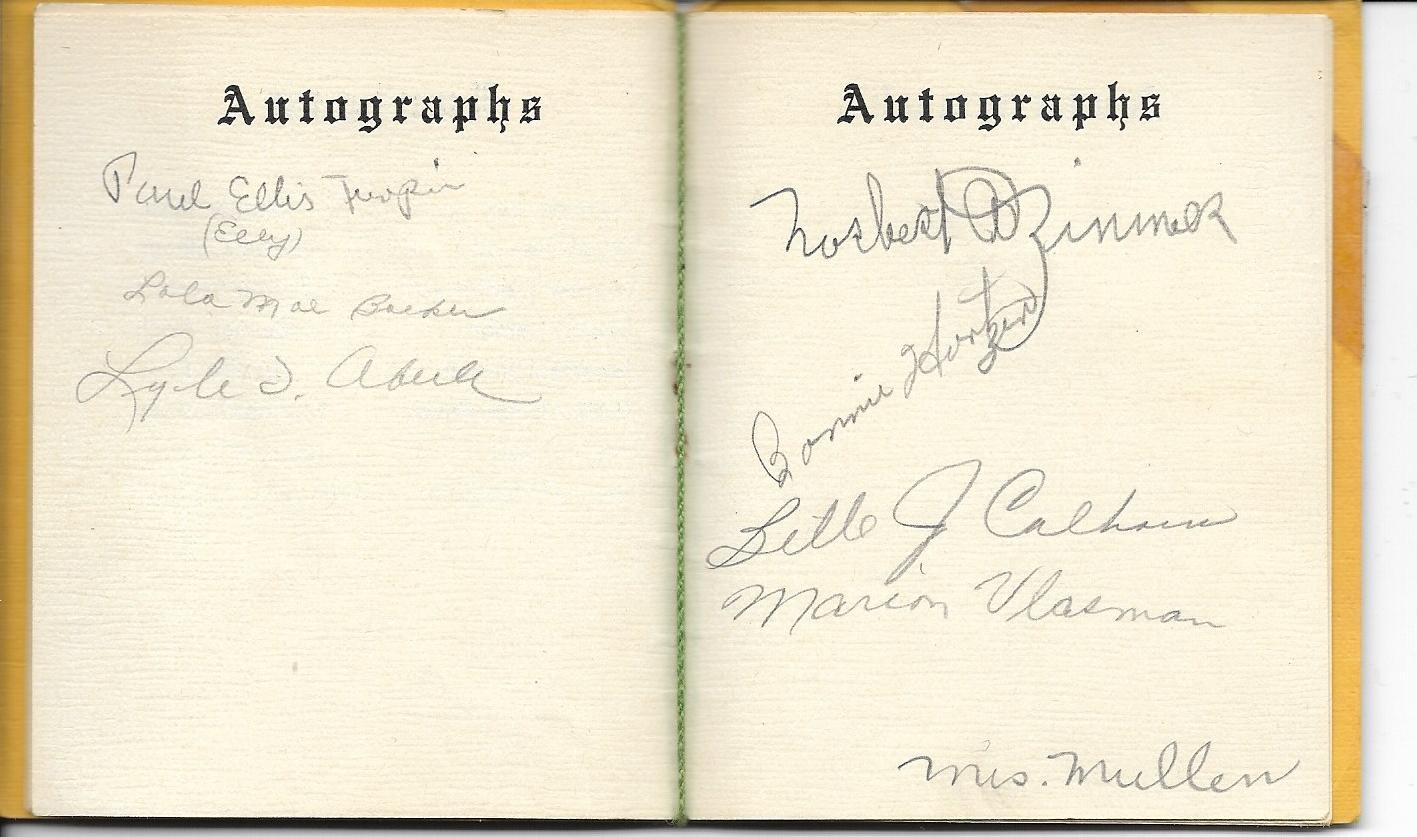 Autographs
Paul Ellis Turpin
(Elly)
Lola Mae
Lyle D. Aberle
Autographs
Norbert D Zimmer
Bonnie Hortzen
Calhoun
Marion Vlasman
Mrs. Mullen